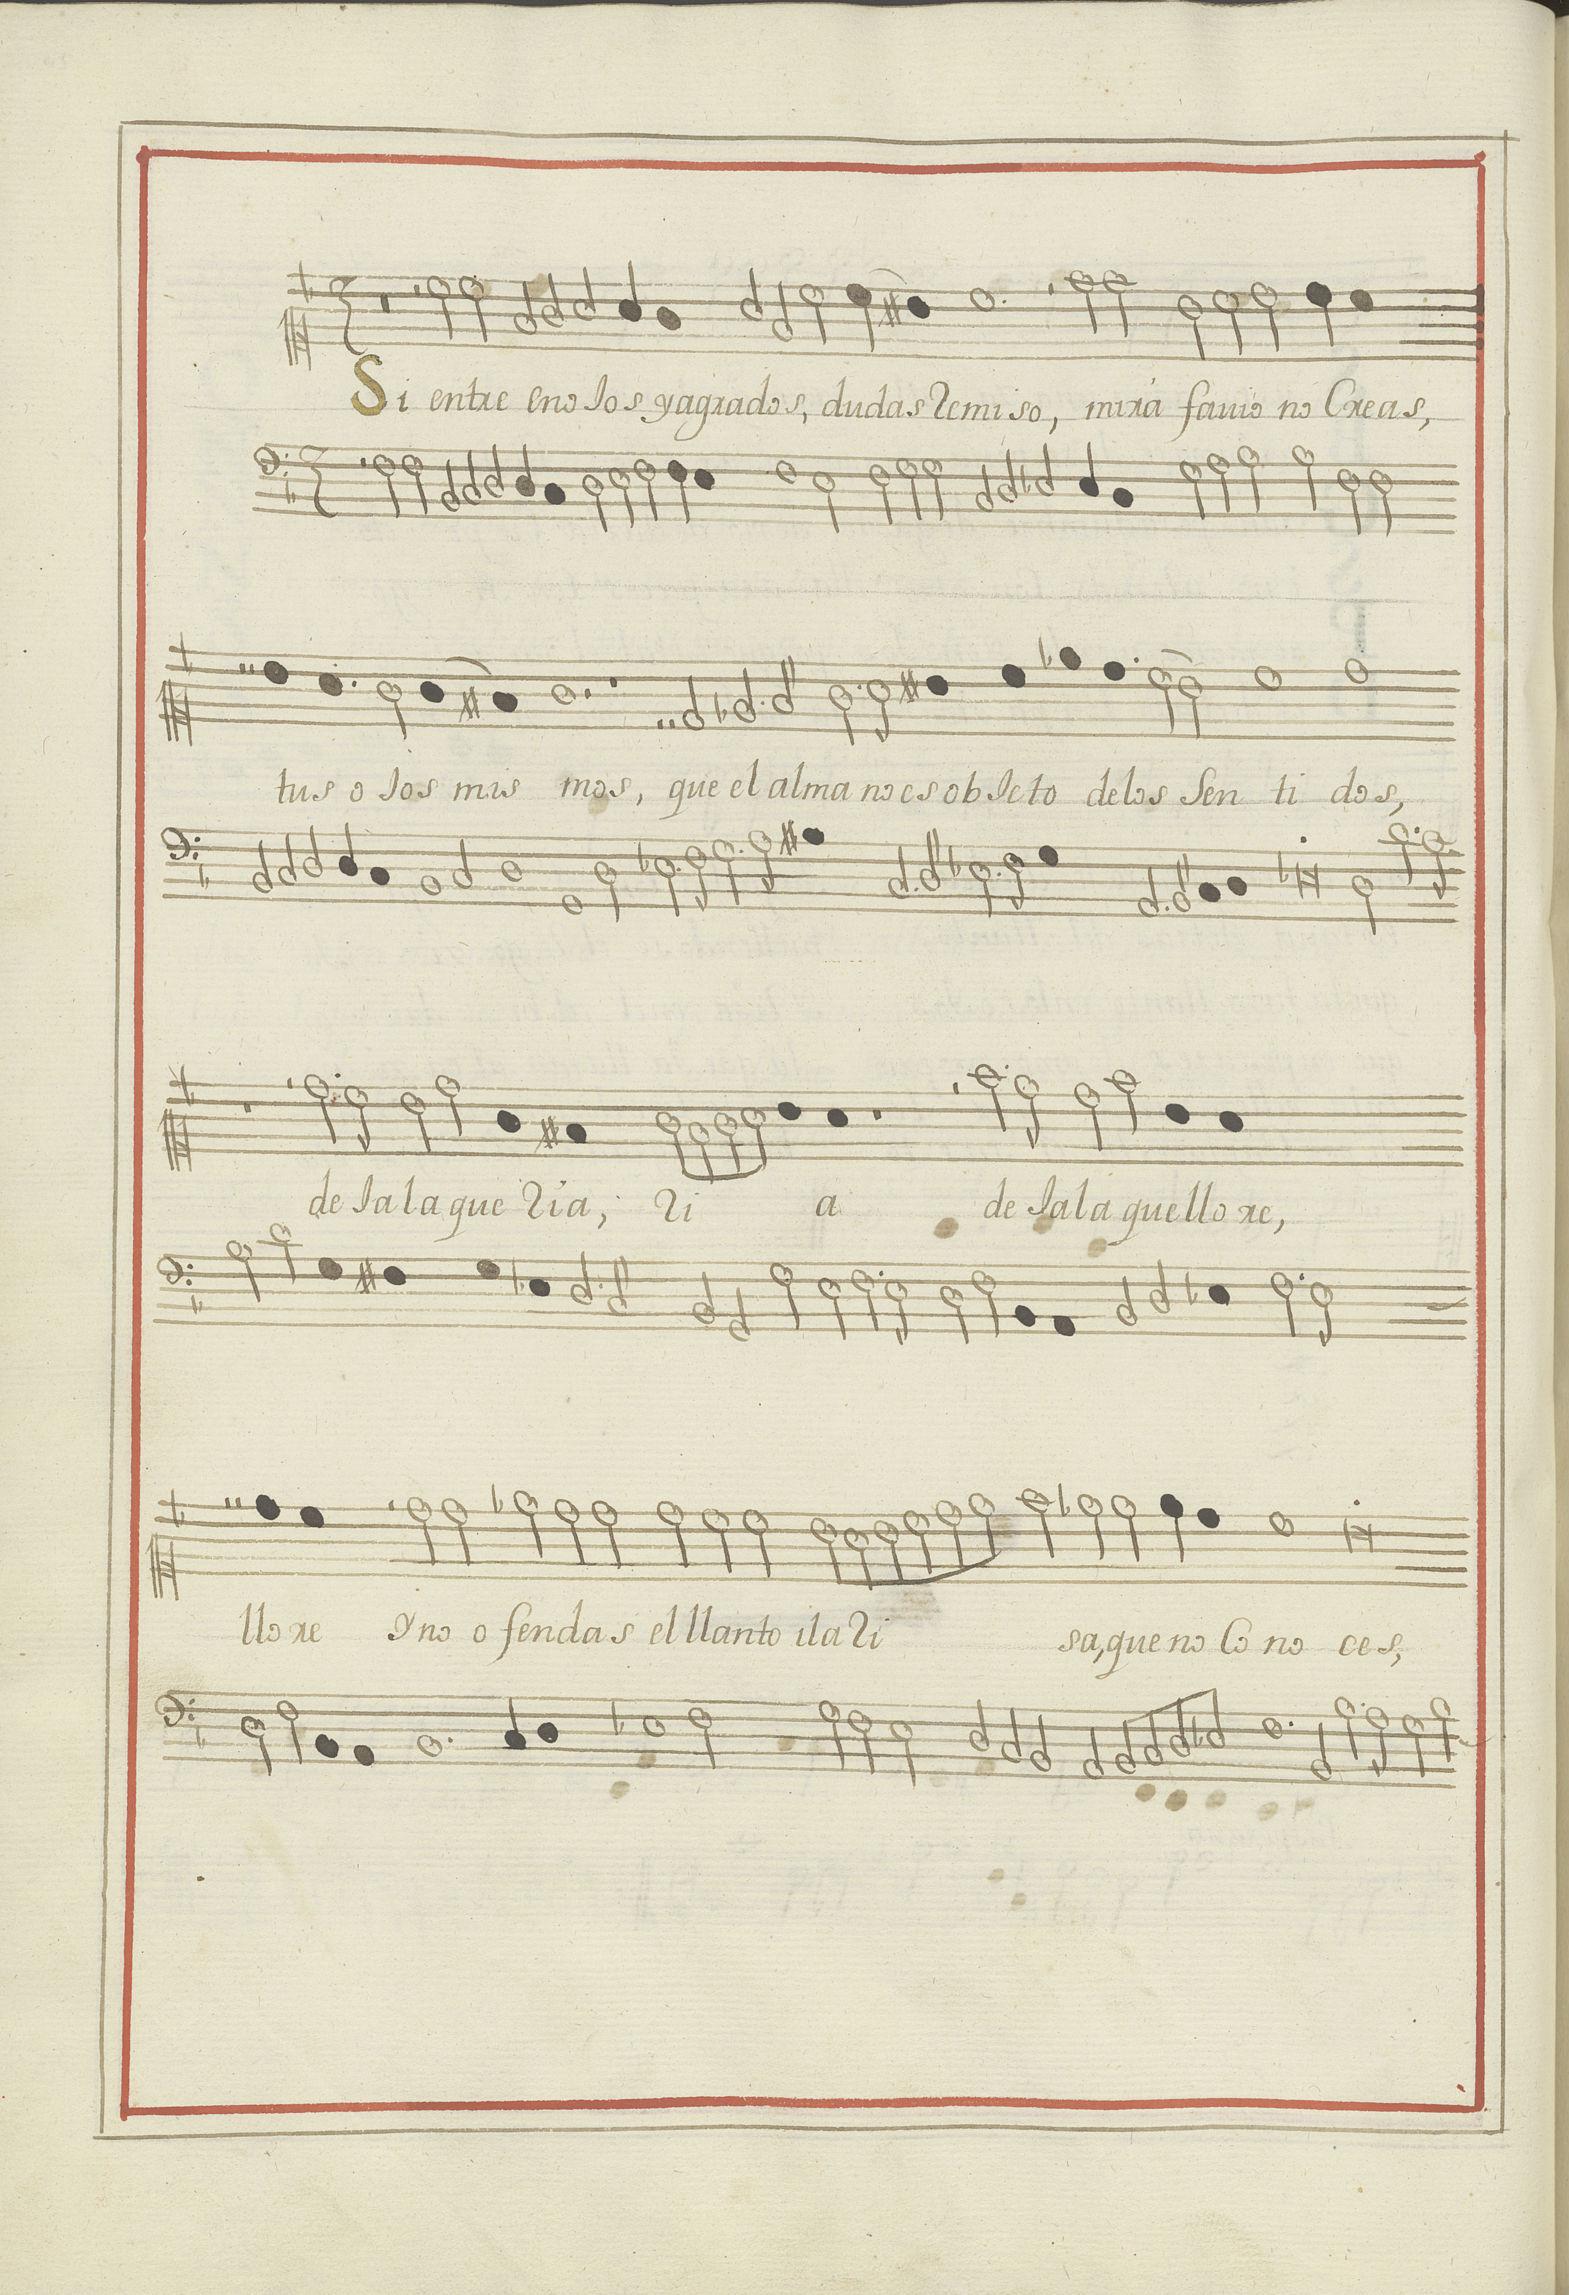 Si entre enoJos yagrados, dudas Remiso, mira favio no Creas,
tus oJos mis mos, que el alma no es obJeto delos Sen ti dos,
deJala que Ria, Ri a deJala que llore,
llore Y no ofendas el llanto ila Ri sa, que no Co no ces,